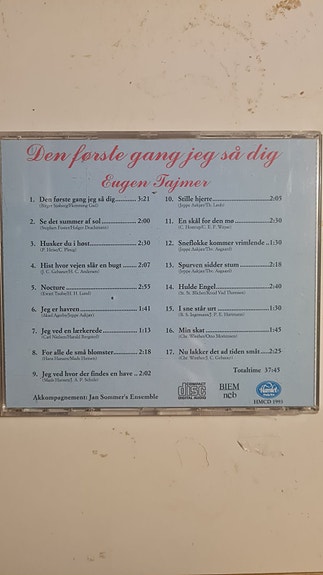 Den første gang jeg så dig
Eugen Tajmer
1. Den første gang jeg så dig 3:21
2. Se det summer af sol 2:00
3. Husker du i høst 2:30
(P. Heise/C. Ploug)
4. Hist hvor vejen slår en bugt 2:07
(J. C. Gebauer/H. C. Andersen)
5. Nocture 2:55
(Evert Taube/H. H. Lund)
6. Jeg er havren 2:41
(Aksel Agerby/Jeppe Aakjær)
7. Jeg ved en lærkerede 1:13
(Carl Nielsen/Harald Bergstedt)
8. For alle de små blomster 2:18
(Hans Hansen/Mads Hansen)
9. Jeg ved hvor der findes en have 2:02
10. Stille hjerte 2:05
(Jeppe Aakjær/Th. Laub)
11. En skål for den mø 2:30
(C. Hostrup/C. E. F. Weyse)
12. Sneflokke kommer vrimlende 1:30
(Jeppe Aakjær/Thv. Aagaard)
13. Spurven sidder stum 2:18
(Jeppe Aakjær/Thv. Aagaard)
14. Hulde Engel 2:40
15. I sne står urt 1:30
16. Min skat 1:45
17. Nu lakker det ad tiden småt 2:25
(Chr. Winther/J. C. Gebauer)
Totaltime 37:45
Akkompagnement: Jan Sommer's Ensemble
COMPACT
disc
DIGITAL AUDIO
BIEM
ncb
HMCD 1993